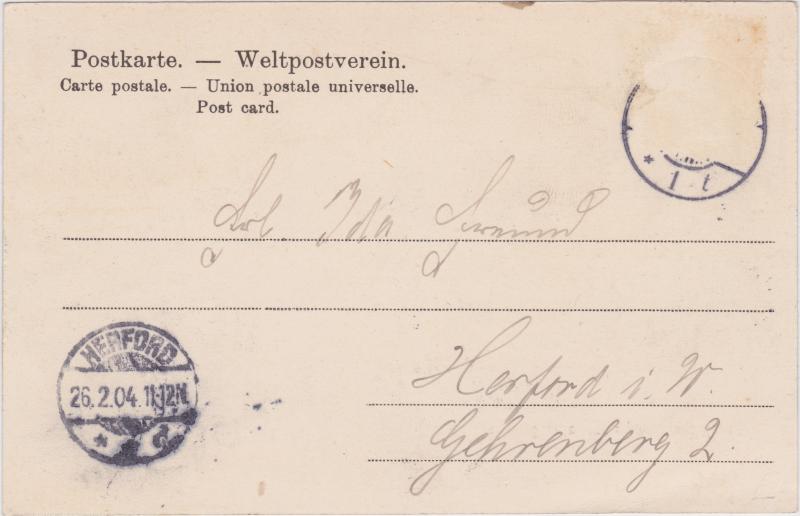 Postkarte. — Weltpostverein.
Carte postale. — Union postale universelle.
Post card.
* 1 t
Frl. Ida Freund
HERFORD
26.2.04. 11-12N.
Herford i. W.
Gehrenberg 2.